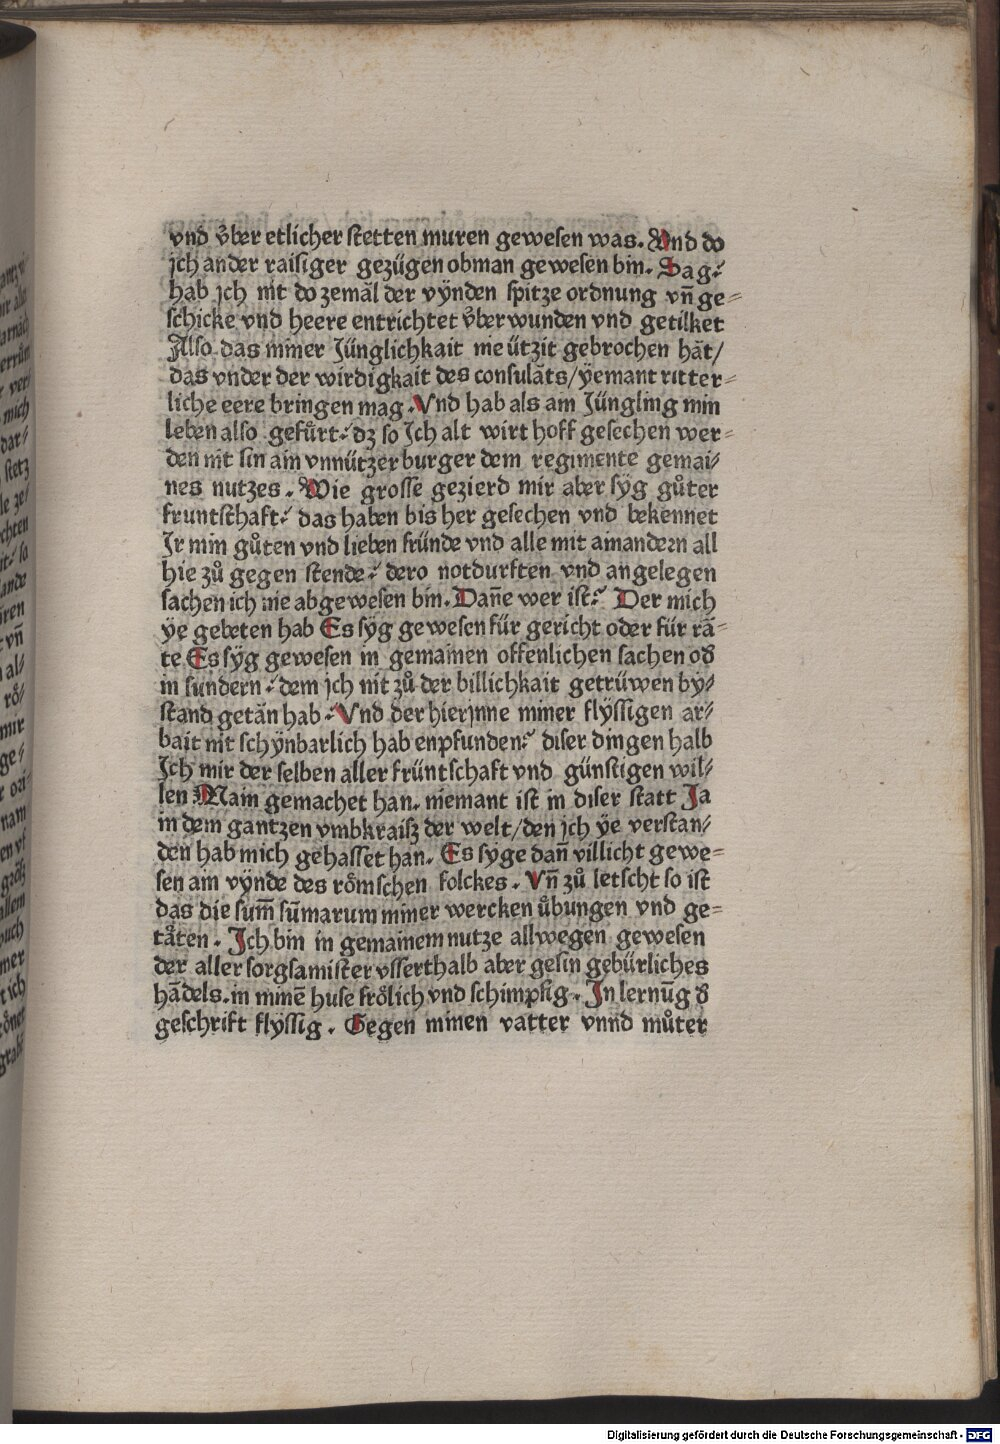 vnd v̊ber etlicher stetten muren gewesen was. Vnd do
ich ander raisiger gezügen obman gewesen bin. Sag?
hab ich nit do zemāl der vÿnden spitze ordnung vn̄ ge=
schicke vnd heere entrichtet v̊ber wunden vnd getilket
Also das miner Jünglichkait me ützit gebrochen hāt/
das vnder der wirdigkait des consulāts/ÿemant ritter=
liche eere bringen mag. Vnd hab als ain Jüngling min
leben also gefůrt? dz so Ich alt wirt hoff gesechen wer=
den nit sin ain vnnützer burger dem regimente gemai/
nes nutzes. Wie grosse gezierd mir aber sÿg gůter
fruntschaft? das haben bis her gesechen vnd bekennet
Ir min gůten vnd lieben fründe vnd alle mit amandern all
hie zů gegen stende? dero notdurften vnd angelegen
sachen ich nie abgewesen bin. Dan̄e wer ist? Der mich
ÿe gebeten hab Es sÿg gewesen für gericht oder für rā=
te Es sÿg gewesen in gemainen offenlichen sachen od̕
in sundern? dem ich nit zů der billichkait getrüwen by/
stand getān hab? Vnd der hierjnne miner flÿssigen ar/
bait nit schÿnbarlich hab enpfunden? diser dingen halb
Ich mir der selben aller früntschaft vnd günstigen wil/
len Main gemachet han. niemant ist in diser statt Ja
in dem gantzen vmbkraisz der welt/den ich ÿe verstan/
den hab mich gehasset han. Es syge dan̄ villicht gewe=
sen ain vÿnde des rőmschen folckes. Vn̄ zů letscht so ist
das die sum̄ sūmarum miner wercken ůbungen vnd ge=
tåten. Ich bin in gemainem nutze allwegen gewesen
der aller sorgsamister vsserthalb aber gesin gebürliches
hādels. in minē huse frőlich vnd schimpfig. In lernūg d̕
geschrift flÿssig. Gegen minen vatter vnnd můter
Digitalisierung gefördert durch die Deutsche Forschungsgemeinschaft - DFG